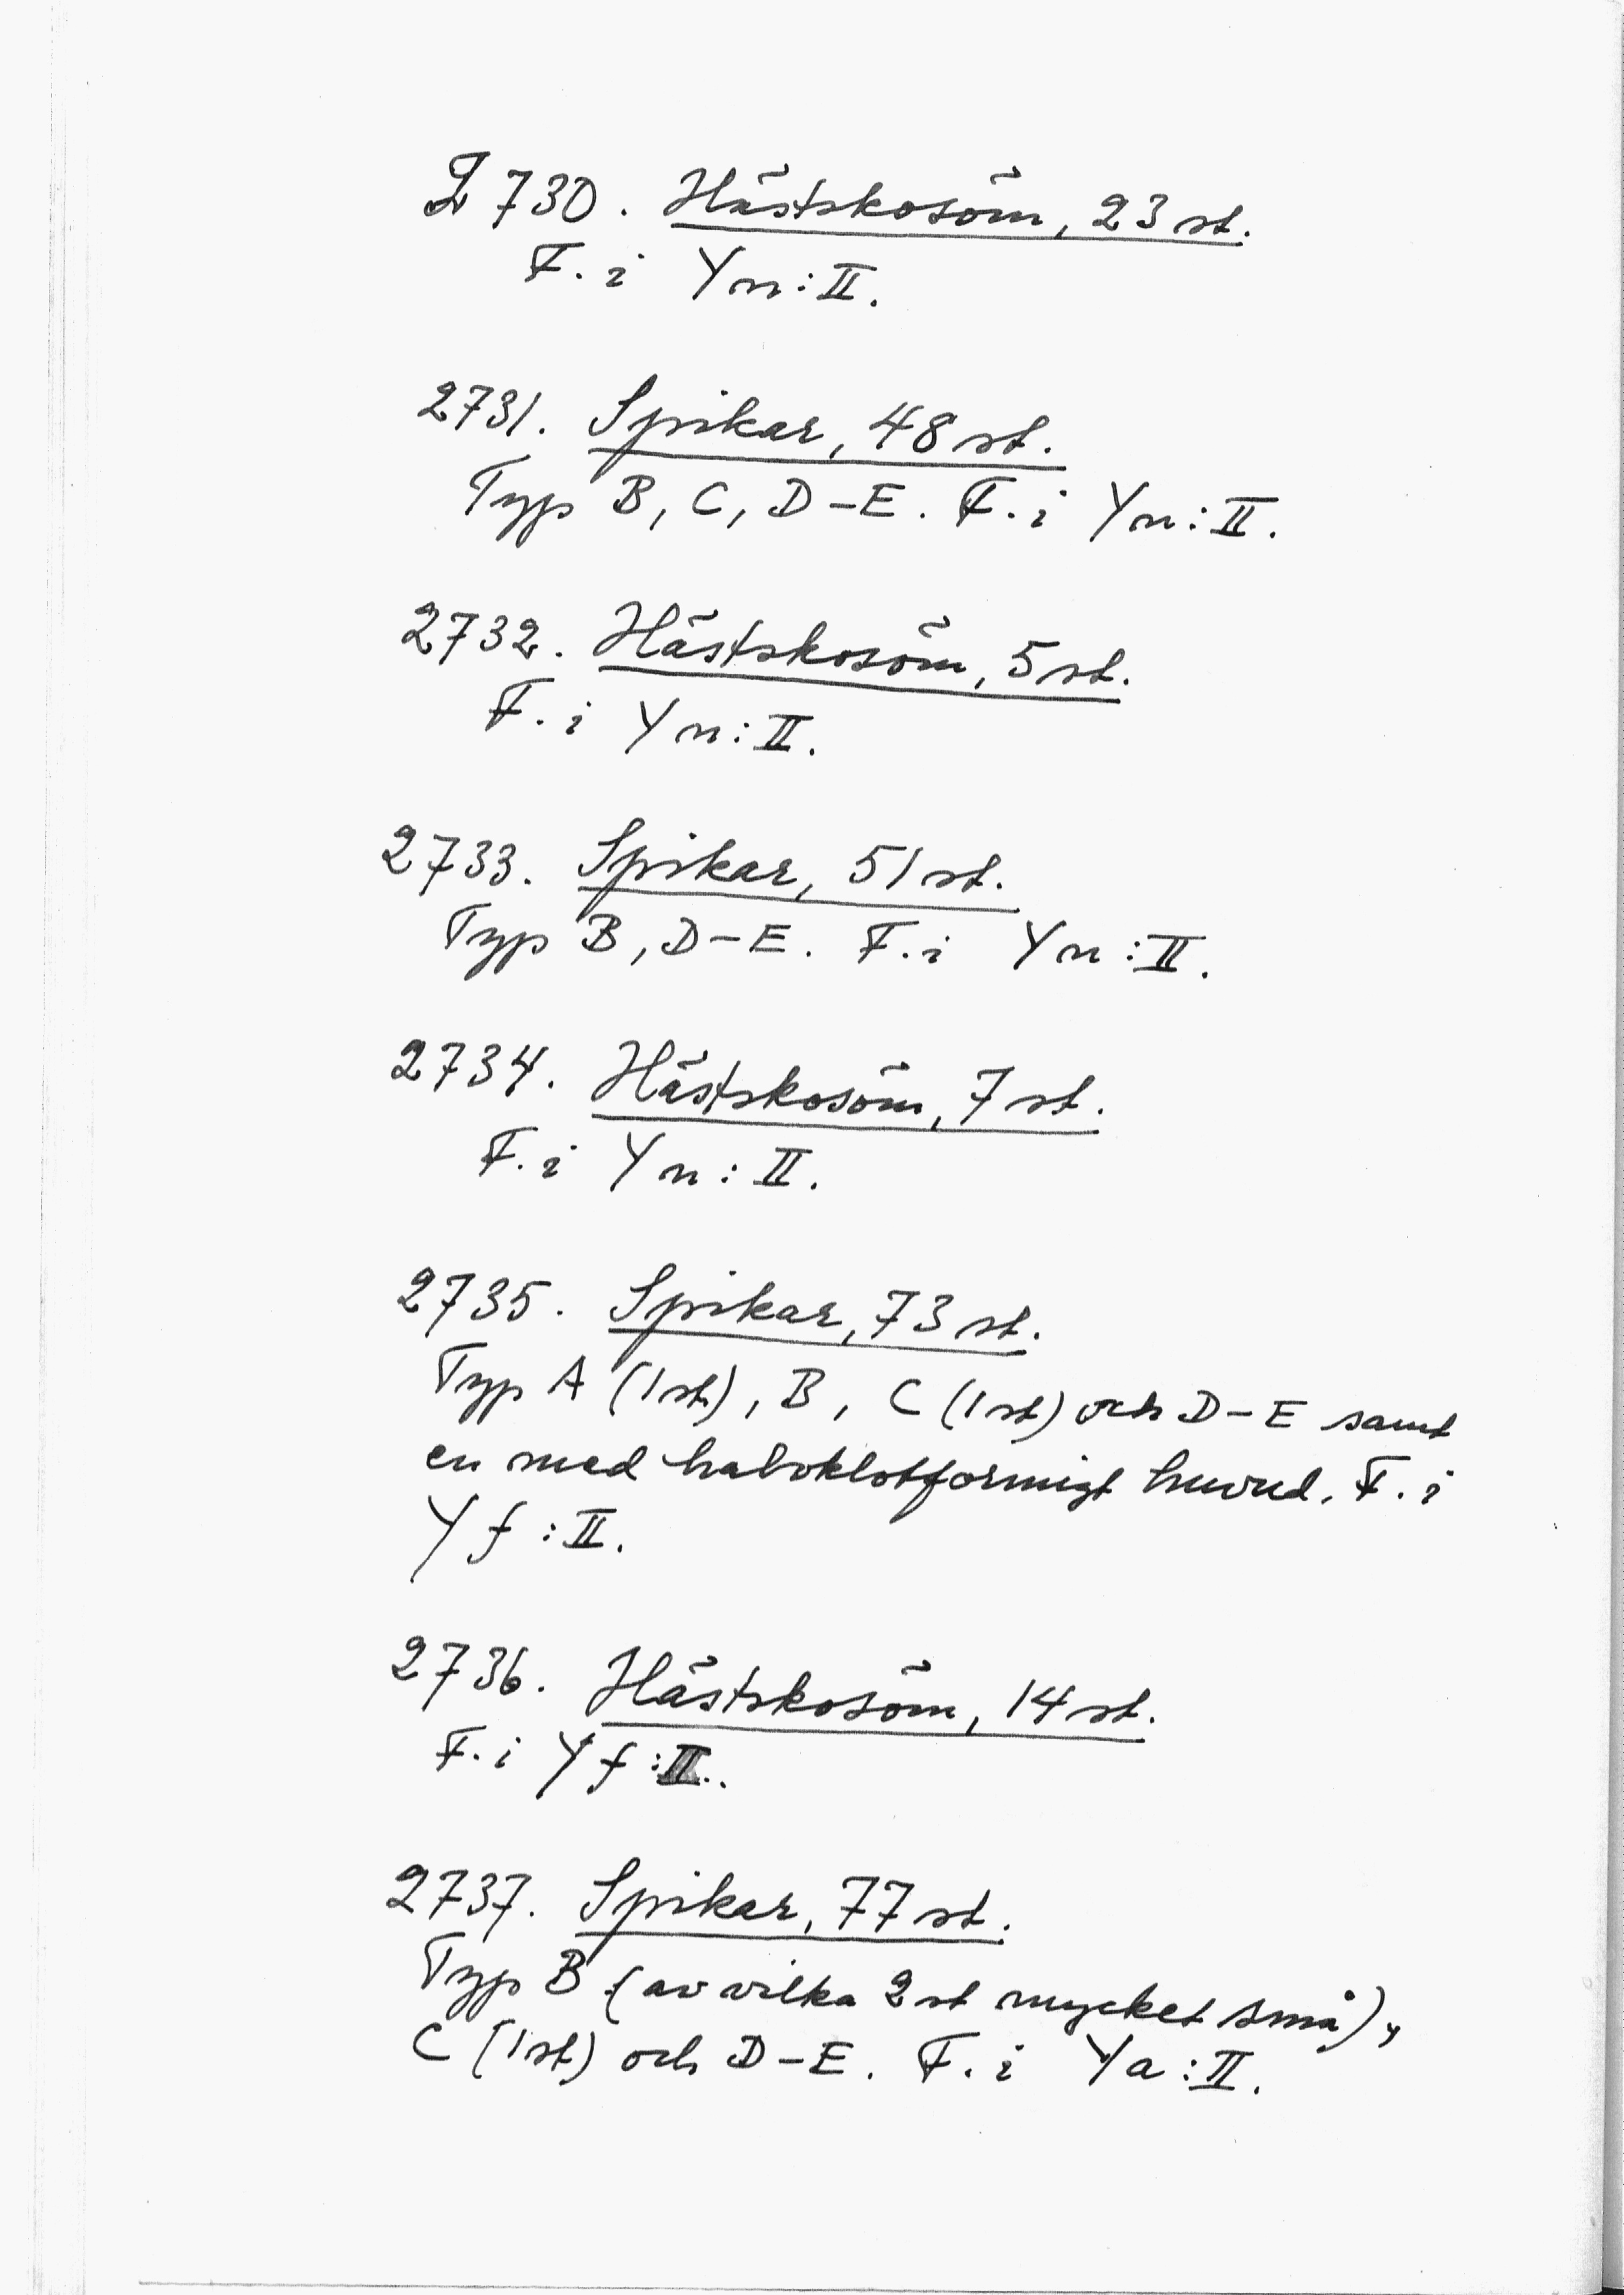 2730. Hästskosöm, 23 st.
F. i Yn:II.
2731. Spikar, 48 st.
Typ B, C, D-E. F. i Yn:II.
2732. Hästskosöm, 5 st.
F. i Yn:II.
2733. Spikar, 51 st.
Typ B, D-E. F. i Yn:II.
2734. Hästskosöm, 7 st.
F. i Yn:II.
2735. Spikar, 73 st.
Typ A (1 st), B, C (1 st) och D-E samt
en med halvklotformigt huvud. F. i
Yf:II.
2736. Hästskosöm, 14 st.
F. i Yf:II.
2737. Spikar, 77 st.
Typ B (av vilka 2 st mycket små),
C (1 st) och D-E. F. i Ya:II.